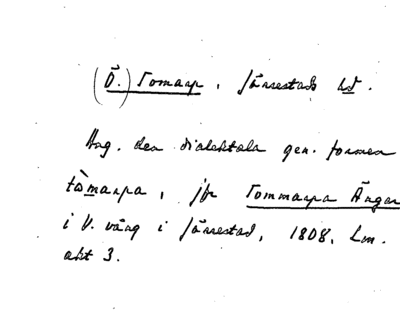 (Ö.) Tomarp, Järrestads hd.
Ang. den dialektala gen. formen
tòmarpa, jfr Tommarpa Ängar
i V. vång i Järrestad, 1808, Lm.
akt 3.